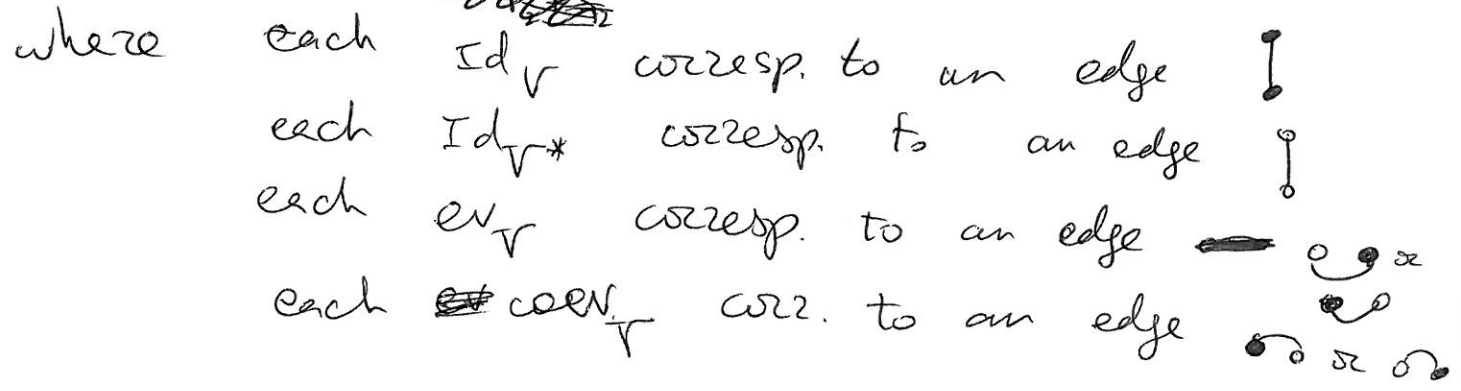 where each Id_V corresp. to an edge
each Id_V* corresp. to an edge
each ev_V corresp. to an edge or
each coev_V corr. to an edge or